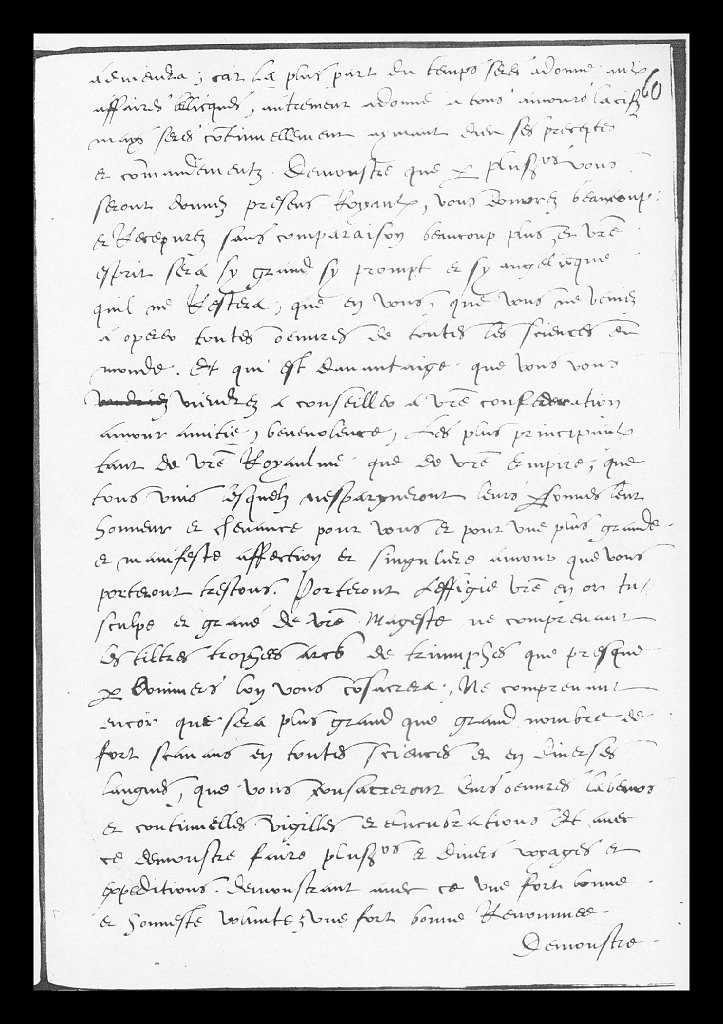 adviendra, car la plus part du temps seres adonne aux
60
affaires bliques, autrement adonne a tous amoure lacifz
mays seres continuellement aymant dieu ses preceptes
et commandementz. Demonstre que p plusrs vous
seront donnez presens Royaulx, vous donnerez beaucoup
et Recepvrez sans comparaison beaucoup plus, et vre
esprit sera sy grand sy prompt et sy angelicque
quil ne Restera, que en vous, que vous ne veniez
a operer toutes oeuvres de toutes les sciences du
monde. Et qui est davantaige que vous vous
viendrez a conseiller a vre confederation
amour amitie, benevolence, Les plus principaulx
tant de vre Royaulme que de vre Empire, que
tous unis lesquelz nespargneront leurs psonnes leur
honneur et chevance pour vous et pour une plus grande
et manifeste affection et singuliere amour que vous
porteront trestous. Porteront Leffigie vre en or in/
sculpe et grave de vre Mageste ne comprenant
les tiltres trophees arcs de triumphes que presque
p lunivers lon vous cosacrera, Ne comprenant
encor que sera plus grand que grand nombre de
fort scavans en toutes sciences et en diverses
langues, que vous consacreront leurs oeuvres labeurs
et continuelles vigilles et elucubrations Et avec
ce demonstre faire plusrs et divers voyages et
expeditions. demonstrant avec ce une fort bonne
et honneste volunte, une fort bonne Renommee.
Demonstre